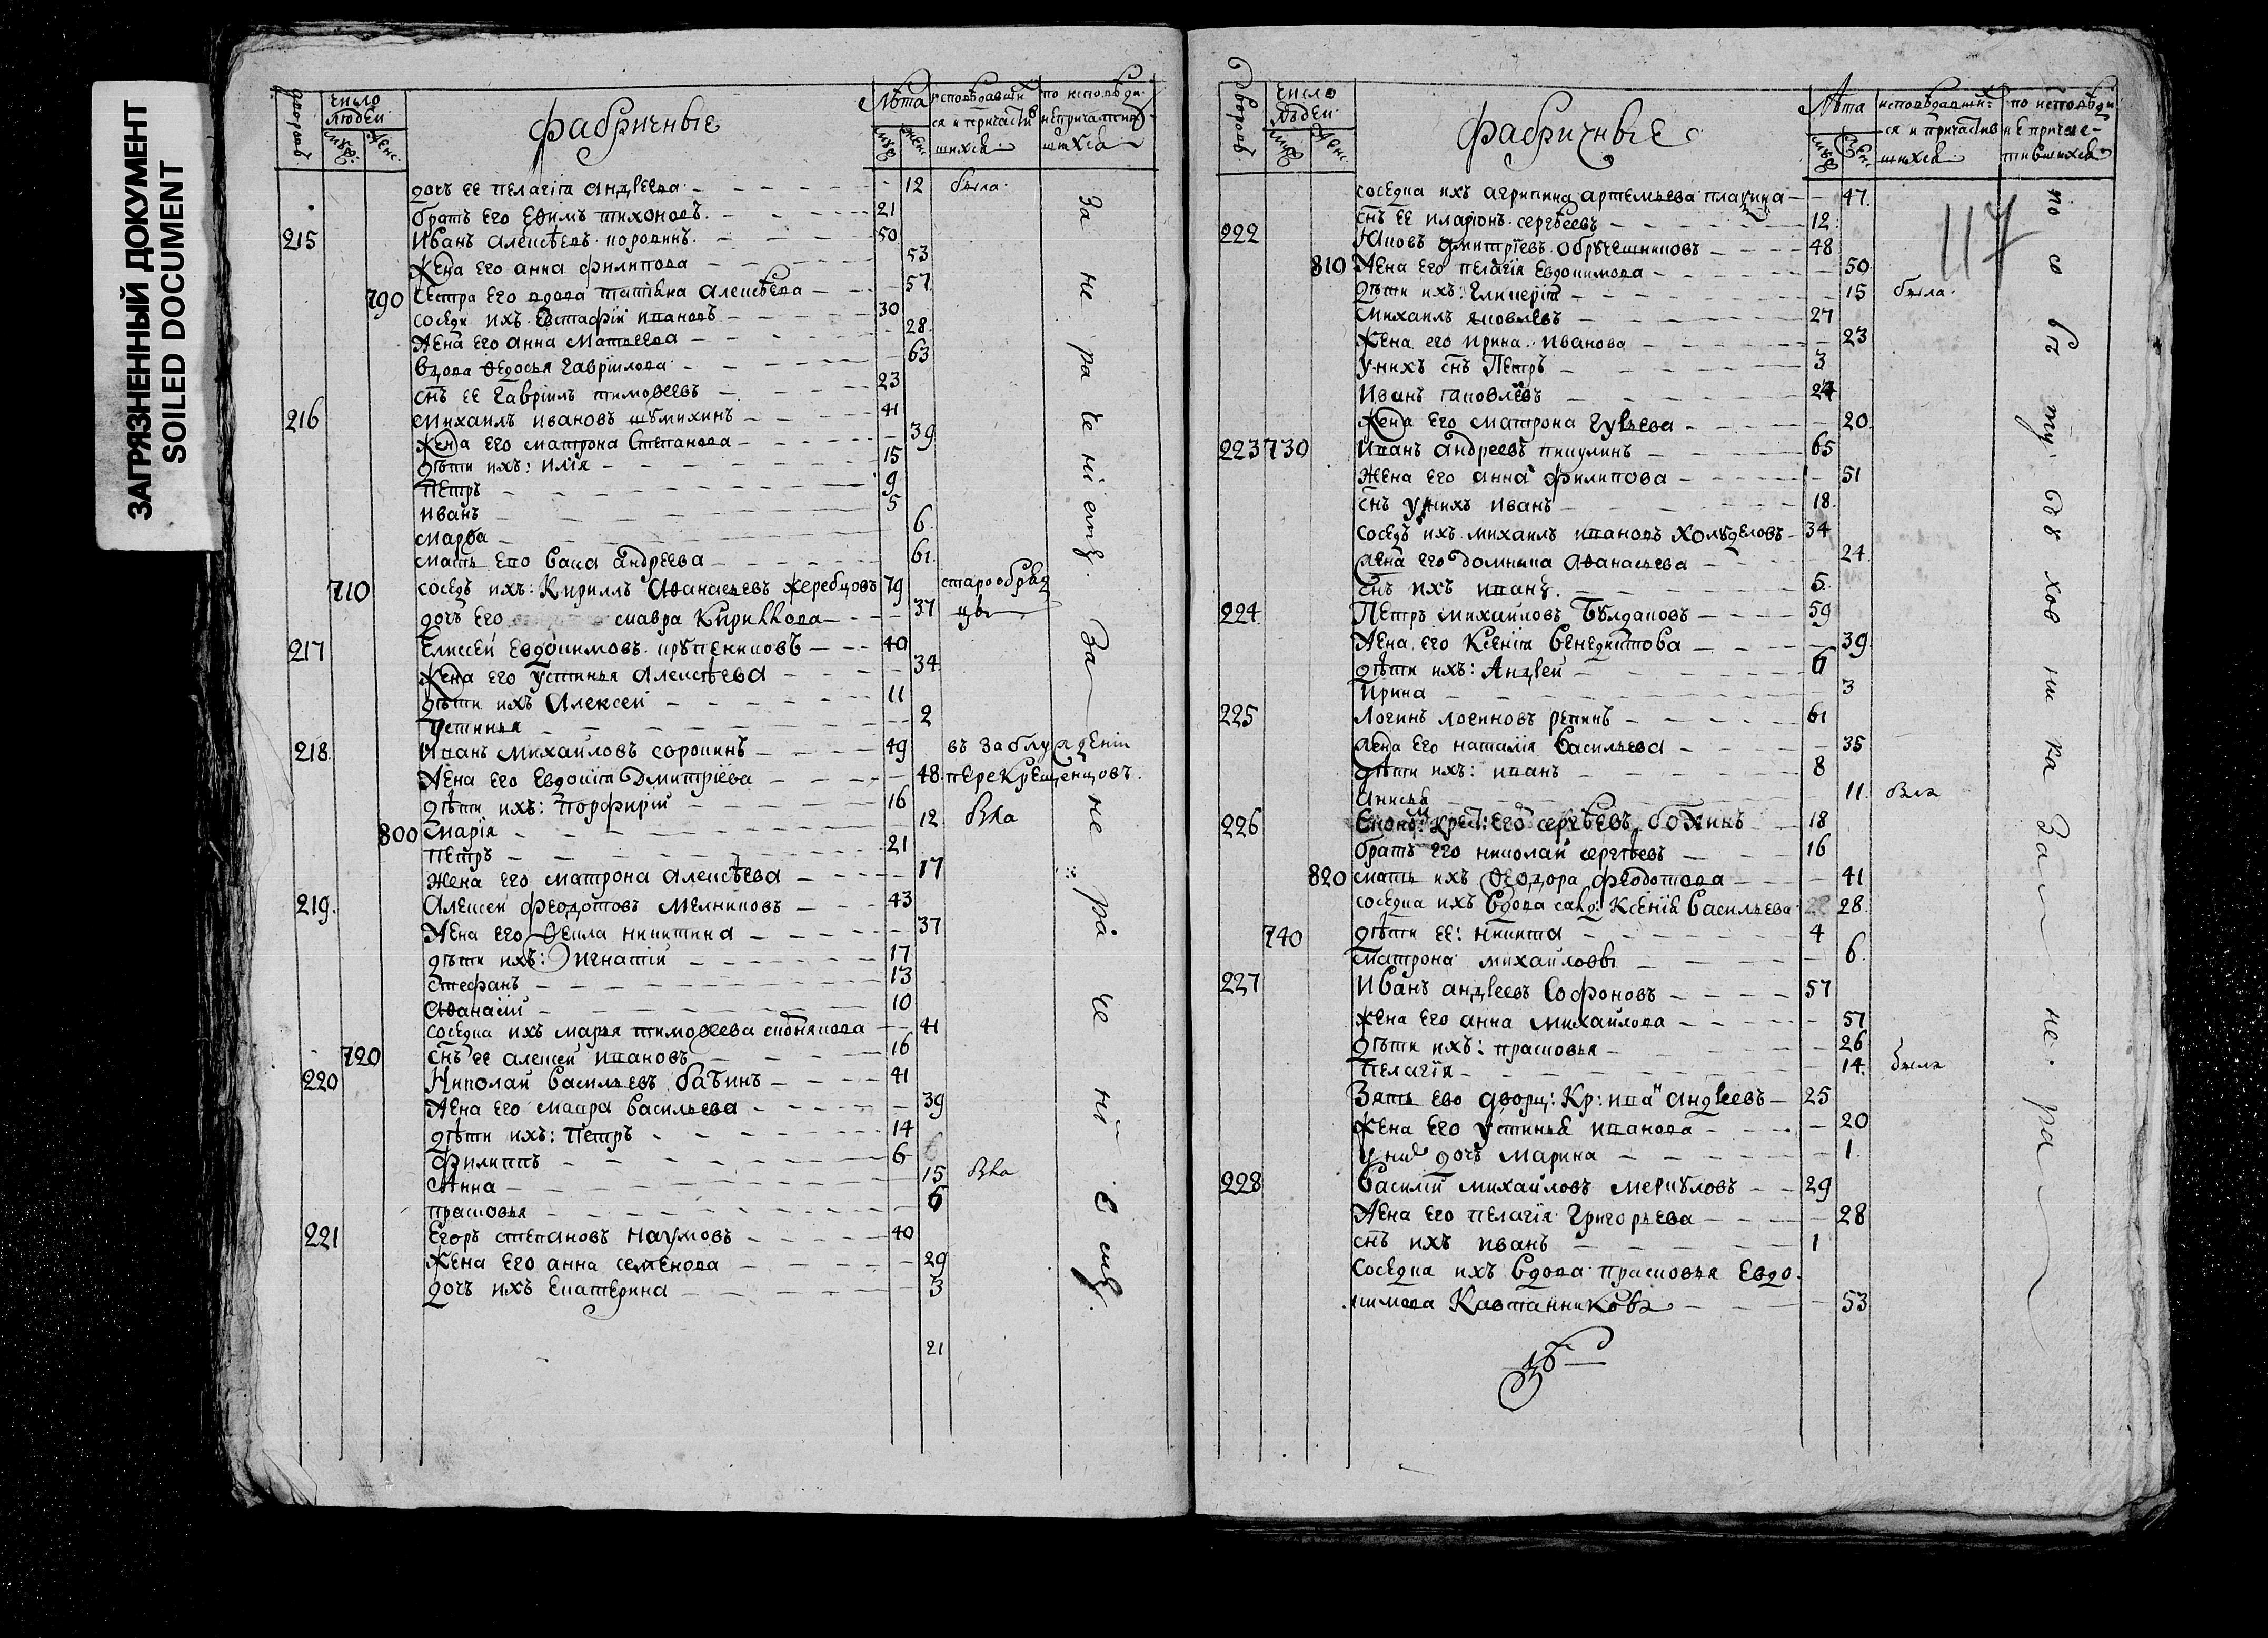 ЗАГРЯЗНЕННЫЙ ДОКУМЕНТ
SOILED DOCUMENT
число людей
фабричные
Лѣта
дочь ее пелагія андреева 12 была
братъ его Ефимъ тихоновъ 21
215 Иванъ алексѣевъ 50
жена его анна филипова 53
сестра его вдова татіяна алексѣева 57
790 соседи ихъ Евстафіи ивановъ 30
жена его анна матвеева 28
вдова ѳедосья гавріилова 63
снъ ее гавріилъ тимоѳеевъ 23
216 михаилъ ивановъ шумихинъ 41
жена его матрона степанова 39
дѣти ихъ: илія 15
петръ 9
иванъ 5
марѳа 6
мать ево васа андреева 61
710 соседъ ихъ: Кириллъ аѳанасьевъ жеребцовъ 79 старообряд
дочь его мавра Кирилова 37 цы
217 Елисеи Евдокимовъ крупениковъ 40
жена его устинья алексѣева 34
дѣти ихъ алексеи 11
устинья 2
218 Иванъ михаиловъ сорокинъ 49 въ заблужденіи
жена его Евдокія Дмитріева 48 перекрещенцовъ
дѣти ихъ: порфиріи 16
800 марія 12 была
петръ 21
жена его матрона алексѣева 17
219 алексеи феодотовъ мелниковъ 43
жена его ѳекла никитина 37
дѣти ихъ: игнатіи 17
стефанъ 13
аѳанасіи 10
соседка ихъ марья тимоѳеева 41
720 снъ ее алексеи ивановъ 16
220 Николаи васильевъ бабинъ 41
жена его мавра васильева 39
дѣти ихъ: петръ 14
филиппъ 6
анна 15 была
прасковья 6
221 Егоръ степановъ наумовъ 40
жена его анна семенова 29
дочь ихъ Екатерина 3
21
за нерачениемъ. за нерачениемъ.
дворовъ
число людей
фабричные
Лѣта
соседка ихъ агрипина артемьева 47
снъ ее иларіонъ сергѣевъ 12
222 Яковъ дмитріевъ обрѵчешниковъ 48
117
810 жена его пелагія Евдокимова 50
дѣти ихъ: гликерія 15 была
михаилъ яковлевъ 27
жена его ирина иванова 23
у нихъ снъ петръ 3
иванъ яковлевъ 24
жена его матрона гурьева 20
223 730 Иванъ андреевъ пикулинъ 65
жена его анна филипова 51
снъ у нихъ иванъ 18
соседъ ихъ михаилъ ивановъ холуделовъ 34
жена его домника аѳанасьева 24
снъ ихъ иванъ 5
224 Петръ михаиловъ булдаковъ 59
жена его Ксенія венедиктова 39
дѣти ихъ: андреи 6
ирина 3
225 Логинъ логиновъ репинъ 61
жена его наталія васильева 35
дѣти ихъ: иванъ 8
анисья 11 была
226 Еконо: крест: его сергѣевъ божинъ 18
братъ его николаи сергѣевъ 16
820 мать ихъ ѳеодора феодотова 41
соседка ихъ вдова салд: Ксенія васильева 28
740 дѣти ее: никита 4
матрона михаиловы 6
227 Иванъ андреевъ софоновъ 57
жена его анна михаилова 57
дѣти ихъ: прасковья 26
пелагія 14 была
зять ево дворц: кр: ива андреевъ 25
жена его устинья иванова 20
у них дочь марина 1
228 василіи михаиловъ меркуловъ 29
жена его пелагія григорьева 28
снъ ихъ иванъ 1
соседка ихъ вдова прасковья Евдо-
кимова Кафтанникова 53